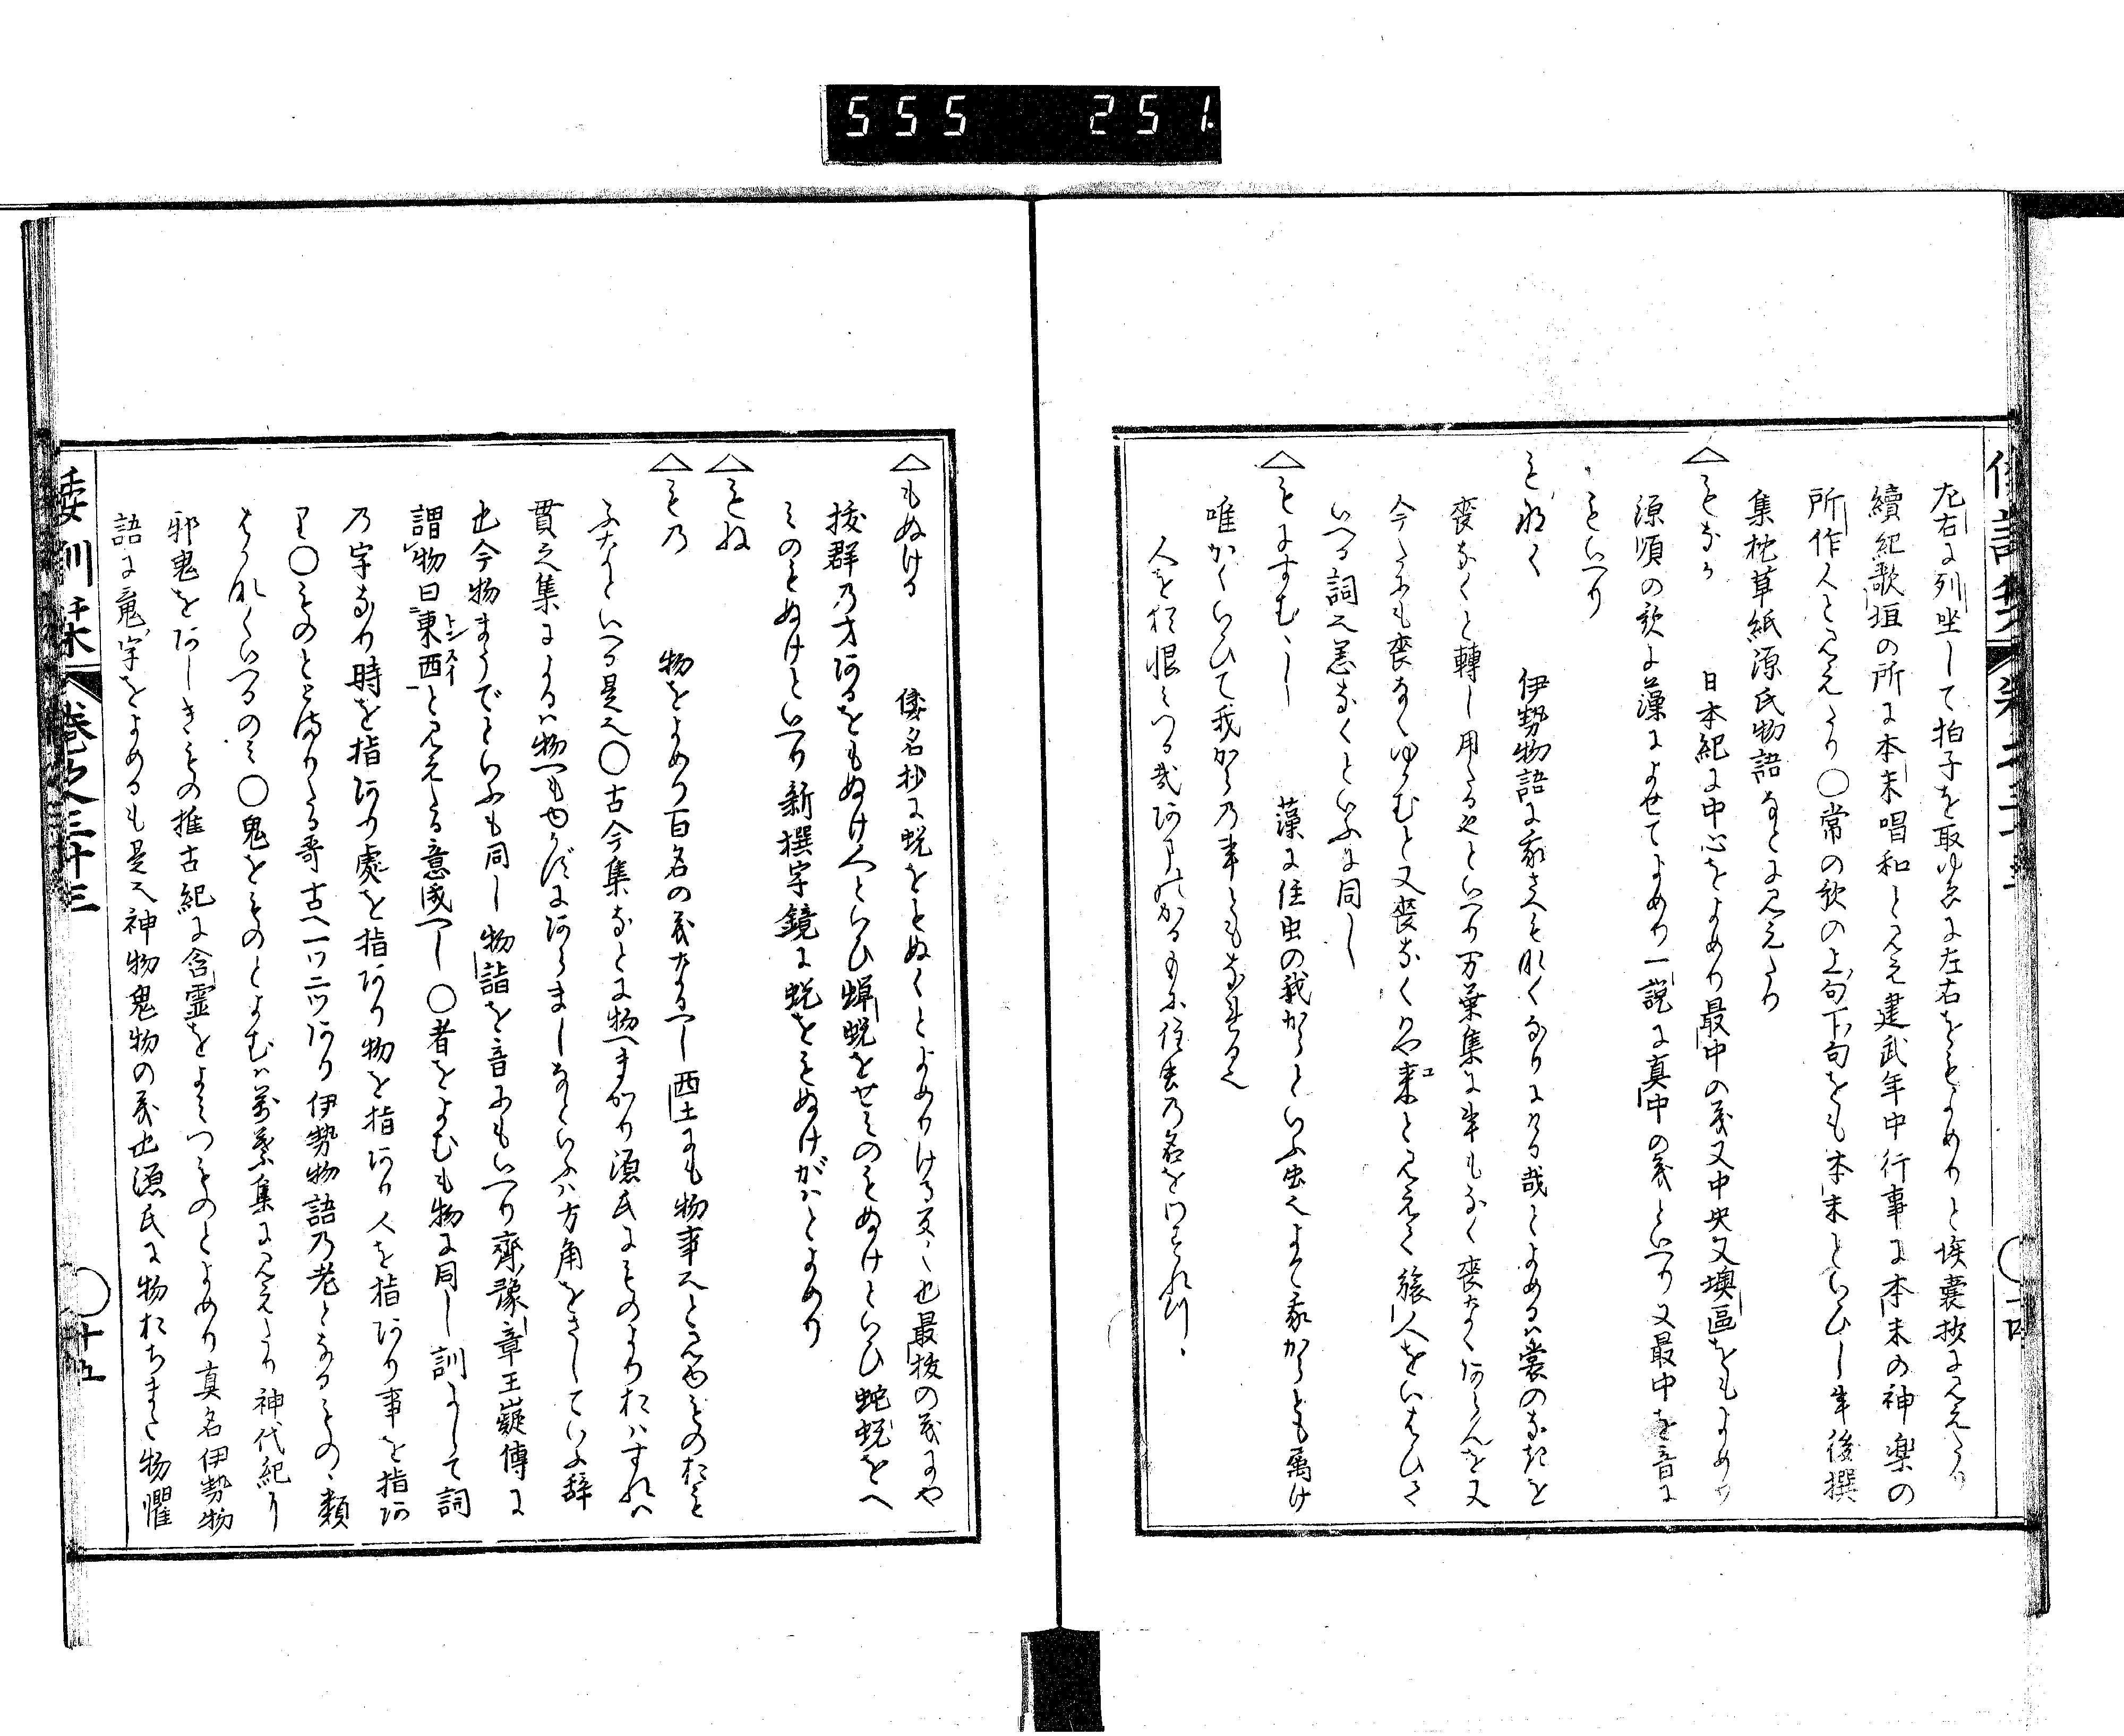 555 251
左右に列坐して拍子を取ゆゑに左右をもとよめりと壒囊抄に見えたり
續紀歌垣の所に本末唱和と見え建武年中行事に本末の神楽の
所作人と見えたり○常の歌の上句下句をも本末といひし事後撰
集枕草紙源氏物語なとに見えたり
△もなか 日本紀に中心をよめり最中の義又中央又墺區をもよめり
源順の歌に藻によせてよめり一説に真中の義といへり又最中を音に
もいへり
もなく 伊勢物語に我さへもなくなりにける哉とよめるハ裳のなきを
喪なくと轉し用たるやといへり万葉集に事もなく喪なくあらんを又
今たにも喪なくゆかむと又喪なくはや来と見えて旅人をいはひて
いへる詞也恙なくといふに同し
△もにすむゝし 藻に住虫の我からといふ虫也よて我からとも属け
唯かくいひて我からの事ともなせる也
人を狂恨みつる哉
倭訓栞 巻之三十三 ○十五
△もぬける 倭名抄に蛻をもぬくとよめりける反く也最拔の義にや
拔群の才あるをもぬけ人といひ蟬蛻をせみのもぬけといひ蛇蛻をへ
みのもぬけといへり新撰字鏡に蛻をもぬけがハとよめり
△もね
△もの 物をよめり百名の義なるへし西土にも物事也と見ゆものおも
ふなといへる是也○古今集なとに物へまかり源氏にものよりおハすれハ
貫之集によるハ物へもゆかずにあらましなといふハ方角をさしていふ辞
也今物まうでといふも同し物詣を音にもいへり齊豫章王嶷傳に
謂物曰東西と見えたる意成へし○者をよむも物に同し訓よして詞
の字なり時を指あり處を指あり物を指あり人を指あり事を指あ
り○ものととまりたる哥古へ一ツ二ツあり伊勢物語の老となるものゝ類
はかれくいつるのミ○鬼をものとよむハ萬葉集に見えたり神代紀に
邪鬼をあしきもの推古紀に含霊をよミつものとよめり真名伊勢物
語に鬼字をよめるも是也神物鬼物の義也源氏に物おちまた物懼